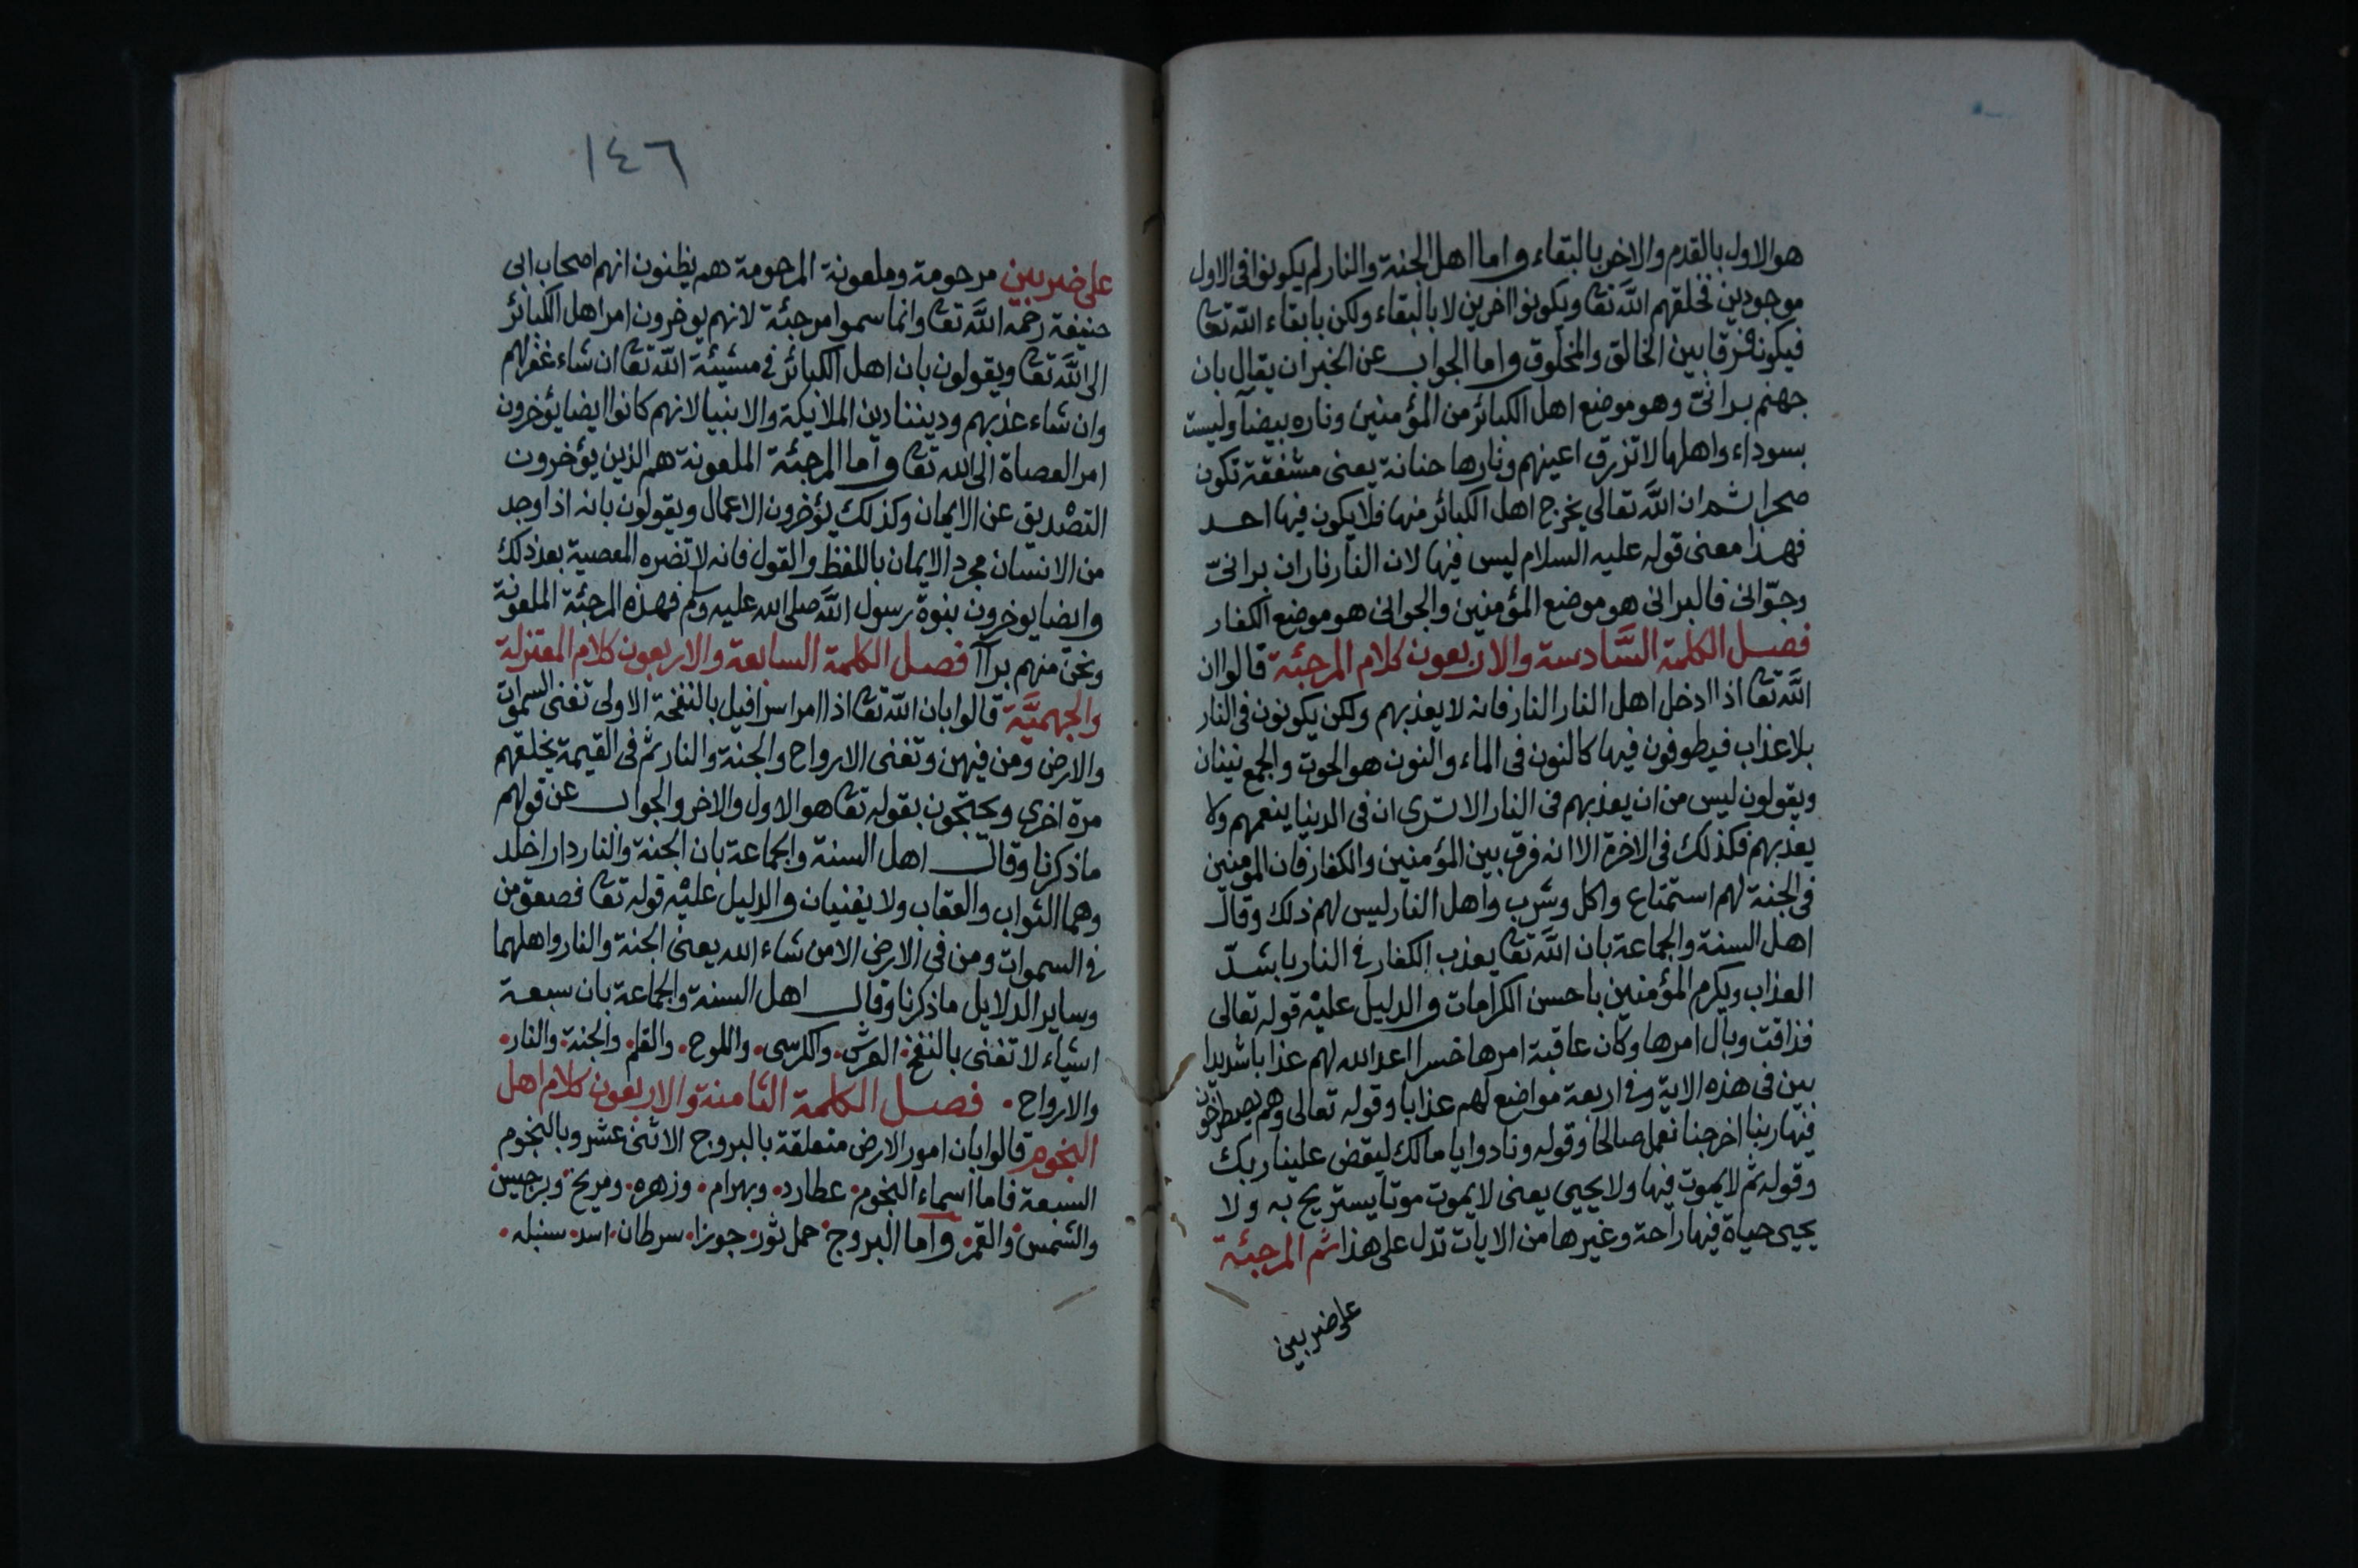 هو الاول بالقدم والاخر بالبقاء واما اهل الجنة والنار لم يكونوا فى الاول
موجودين فخلقهم الله تعا ويكونوا اخرين لا بالبقاء ولكن بابقاء الله تعا
فيكونه فرقا بين الخالق والمخلوق واما الجواب عن الخبر ان يقال بان
جهنم برانىّ وهو موضع اهل الكبائر من المؤمنين وناره بيضآ وليست
بسوداء واهلها لا تزرق اعينهم ونارها حنانة يعنى مشفقة تكون
صحرا ثم ان الله تعالى يخرج اهل الكبائر منها فلا يكون فيها احد
فهذا معنى قوله عليه السلام ليس فيها لان النار ناران برانىّ
وجوّانى فالبرانى هو موضع المؤمنين والجوانى هو موضع الكفار
فصل الكلمة السَّادسة والاربعون كلام المرجئة قالوا ان
الله تعا اذا ادخل اهل النار النار فانه لا يعذبهم ولكن يكونون فى النار
بلا عذاب فيطوفون فيها كالنون فى الماء والنون هو الحوت والجمع نينان
ويقولون ليس من ان يعذبهم فى النار الا ترى ان فى الدنيا ينعمهم ولا
يعذبهم فكذلك فى الاخرة الا انه فرق بين المؤمنين والكفار فان المومنين
فى الجنة لهم استمتاع واكل وشرب واهل النار ليس لهم ذلك وقال
اهل السنة والجماعة بان الله تعا يعذب الكفار فى النار باشدّ
العذاب ويكرم المؤمنين باحسن الكرامات والدليل عليْه قوله تعالى
فذاقت وبال امرها وكان عاقبة امرها خسرا اعد الله لهم عذابا شديدا
بين فى هذه الاية وفى اربعة مواضع لهم عذابا وقوله تعالى وهم يصطرخون
فيها ربنا اخرجنا نعمل صالحا وقوله ونادوا يا مالك ليقض علينا ربك
وقوله ثم لا يموت فيها ولا يحيى يعنى لا يموت موتا يستريح به ولا
يحيى حياة فيها راحة وغيرها من الايات تدل على هذا ثم المرجئة
على ضربين
١٤٦
على ضربين مرحومة وملعونة المرحومة هم يظنون انهم اصحاب ابى
حنيفة رحمه الله تعا وانما سموا مرجئة لانهم يوخرون امر اهل الكبائر
الى الله تعا ويقولون بان اهل الكبائر فى مشيئة الله تعا ان شاء غفر لهم
وان شاء عذبهم وديننا دين الملائيكة والانبيا لانهم كانوا ايضا يؤخرون
امر العصاة الى الله تعا واما المرجئة الملعونة هم الذين يؤخرون
التصْديق عن الايمان وكذلك يؤخرون الاعمال ويقولون بانه اذا وجد
من الانسان مجرد الايمان باللفظ والقول فانه لا تضره المعصية بعد ذلك
وايضا يوخرون بنوة رسول الله صلى الله عليه وسلم فهذه المرجئة الملعونة
ونحن منهم برآآ فصل الكلمة السابعة والاربعون كلام المعتزلة
والجهميَّة قالوا بان الله تعا اذا امر اسرافيل بالنفخة الاولى تفنى السموات
والارض ومن فيهن وتفنى الارواح والجنة والنار ثم فى القيمة يخلقهم
مرة اخرى ويحتجون بقوله تعا هو الاول والاخر والجواب عن قولهم
ماذكرنا وقال اهل السنة والجماعة بان الجنة والنار دارا خلد
وهما الثواب والعقاب ولا يفنيان والدليل عليْه قوله تعا فصعق من
فى السموات ومن فى الارض الا من شاء الله يعنى الجنة والنار واهلهما
وساير الدلايل ماذكرنا وقال اهل السنة والجماعة بان سبعة
اشياء لا تفنى بالنفخ العرش والكرسى واللوح والقلم والجنة والنار
والارواح فصل الكلمة الثامنة والاربعون كلام اهل
النجوم قالوا بان امور الارض متعلقة بالبروج الاثنى عشر وبالنجوم
السبعة فاما اسماء النجوم عطارد وبهرام وزهره ومريخ وبرجيس
والشمس والقمر واما البروج حمل ثور جوزا سرطان اسد سنبله